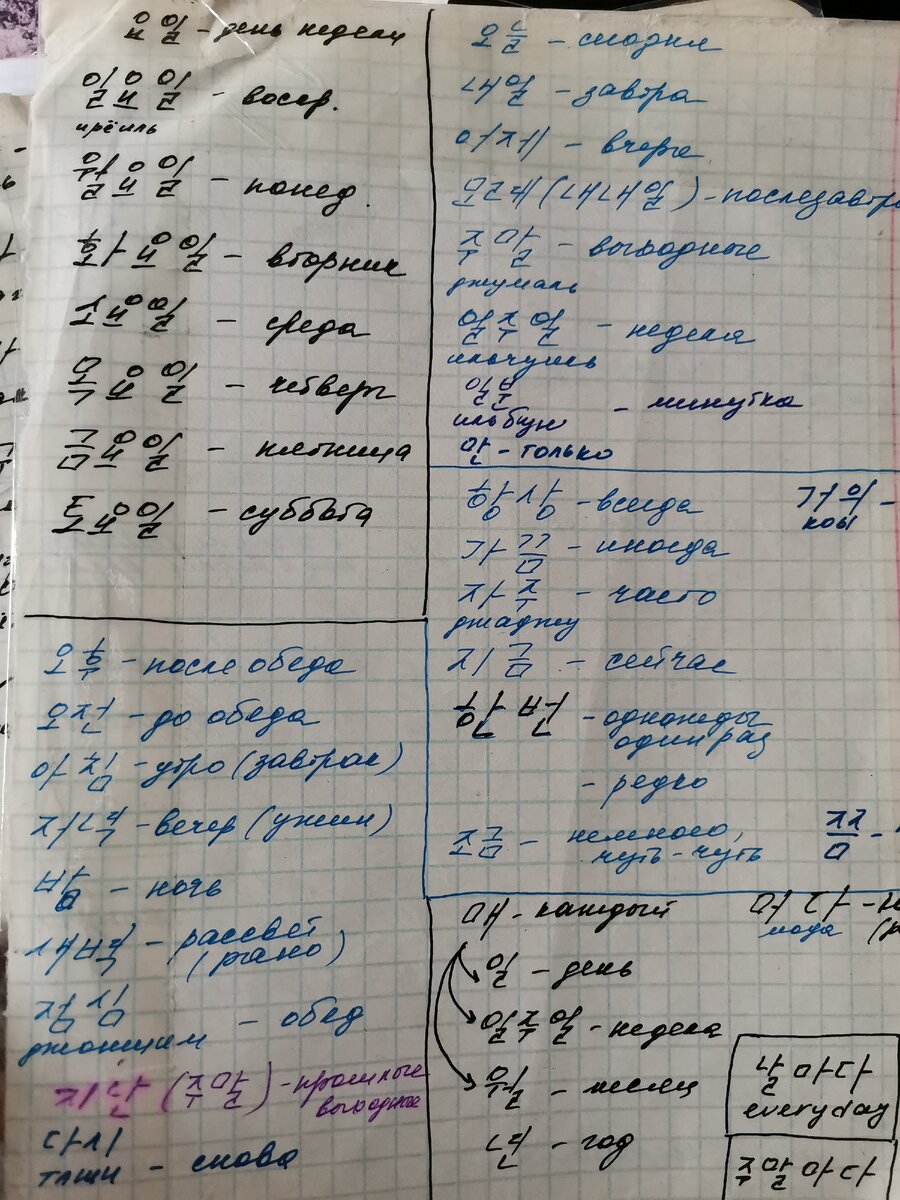 요일 - день недели
일요일 - воскр.
ирёиль
월요일 - понед.
화요일 - вторник
수요일 - среда
목요일 - четверг
금요일 - пятница
토요일 - суббота
오후 - после обеда
오전 - до обеда
아침 - утро (завтрак)
저녁 - вечер (ужин)
밤 - ночь
새벽 - рассвет
(рано)
점심 - обед
джомщим
지난 (주말) - прошлые
выходные
다시 - снова
таши
오늘 - сегодня
내일 - завтра
어제 - вчера
모레 (내내일) - послезавтра
주말 - выходные
джумаль
일주일 - неделя
ильчуиль
일부 - минутка
ильбун
만 - только
항상 - всегда
거의 -
кОЫ
가끔 - иногда
자주 - часто
джаджу
지금 - сейчас
한번 - однажды
один раз
- редко
조금 - немного,
чуть-чуть
쯤 -
매 - каждый
마다 -
мада
일 - день
일주일 - неделя
월 - месяц
년 - год
날마다
everyday
주말마다